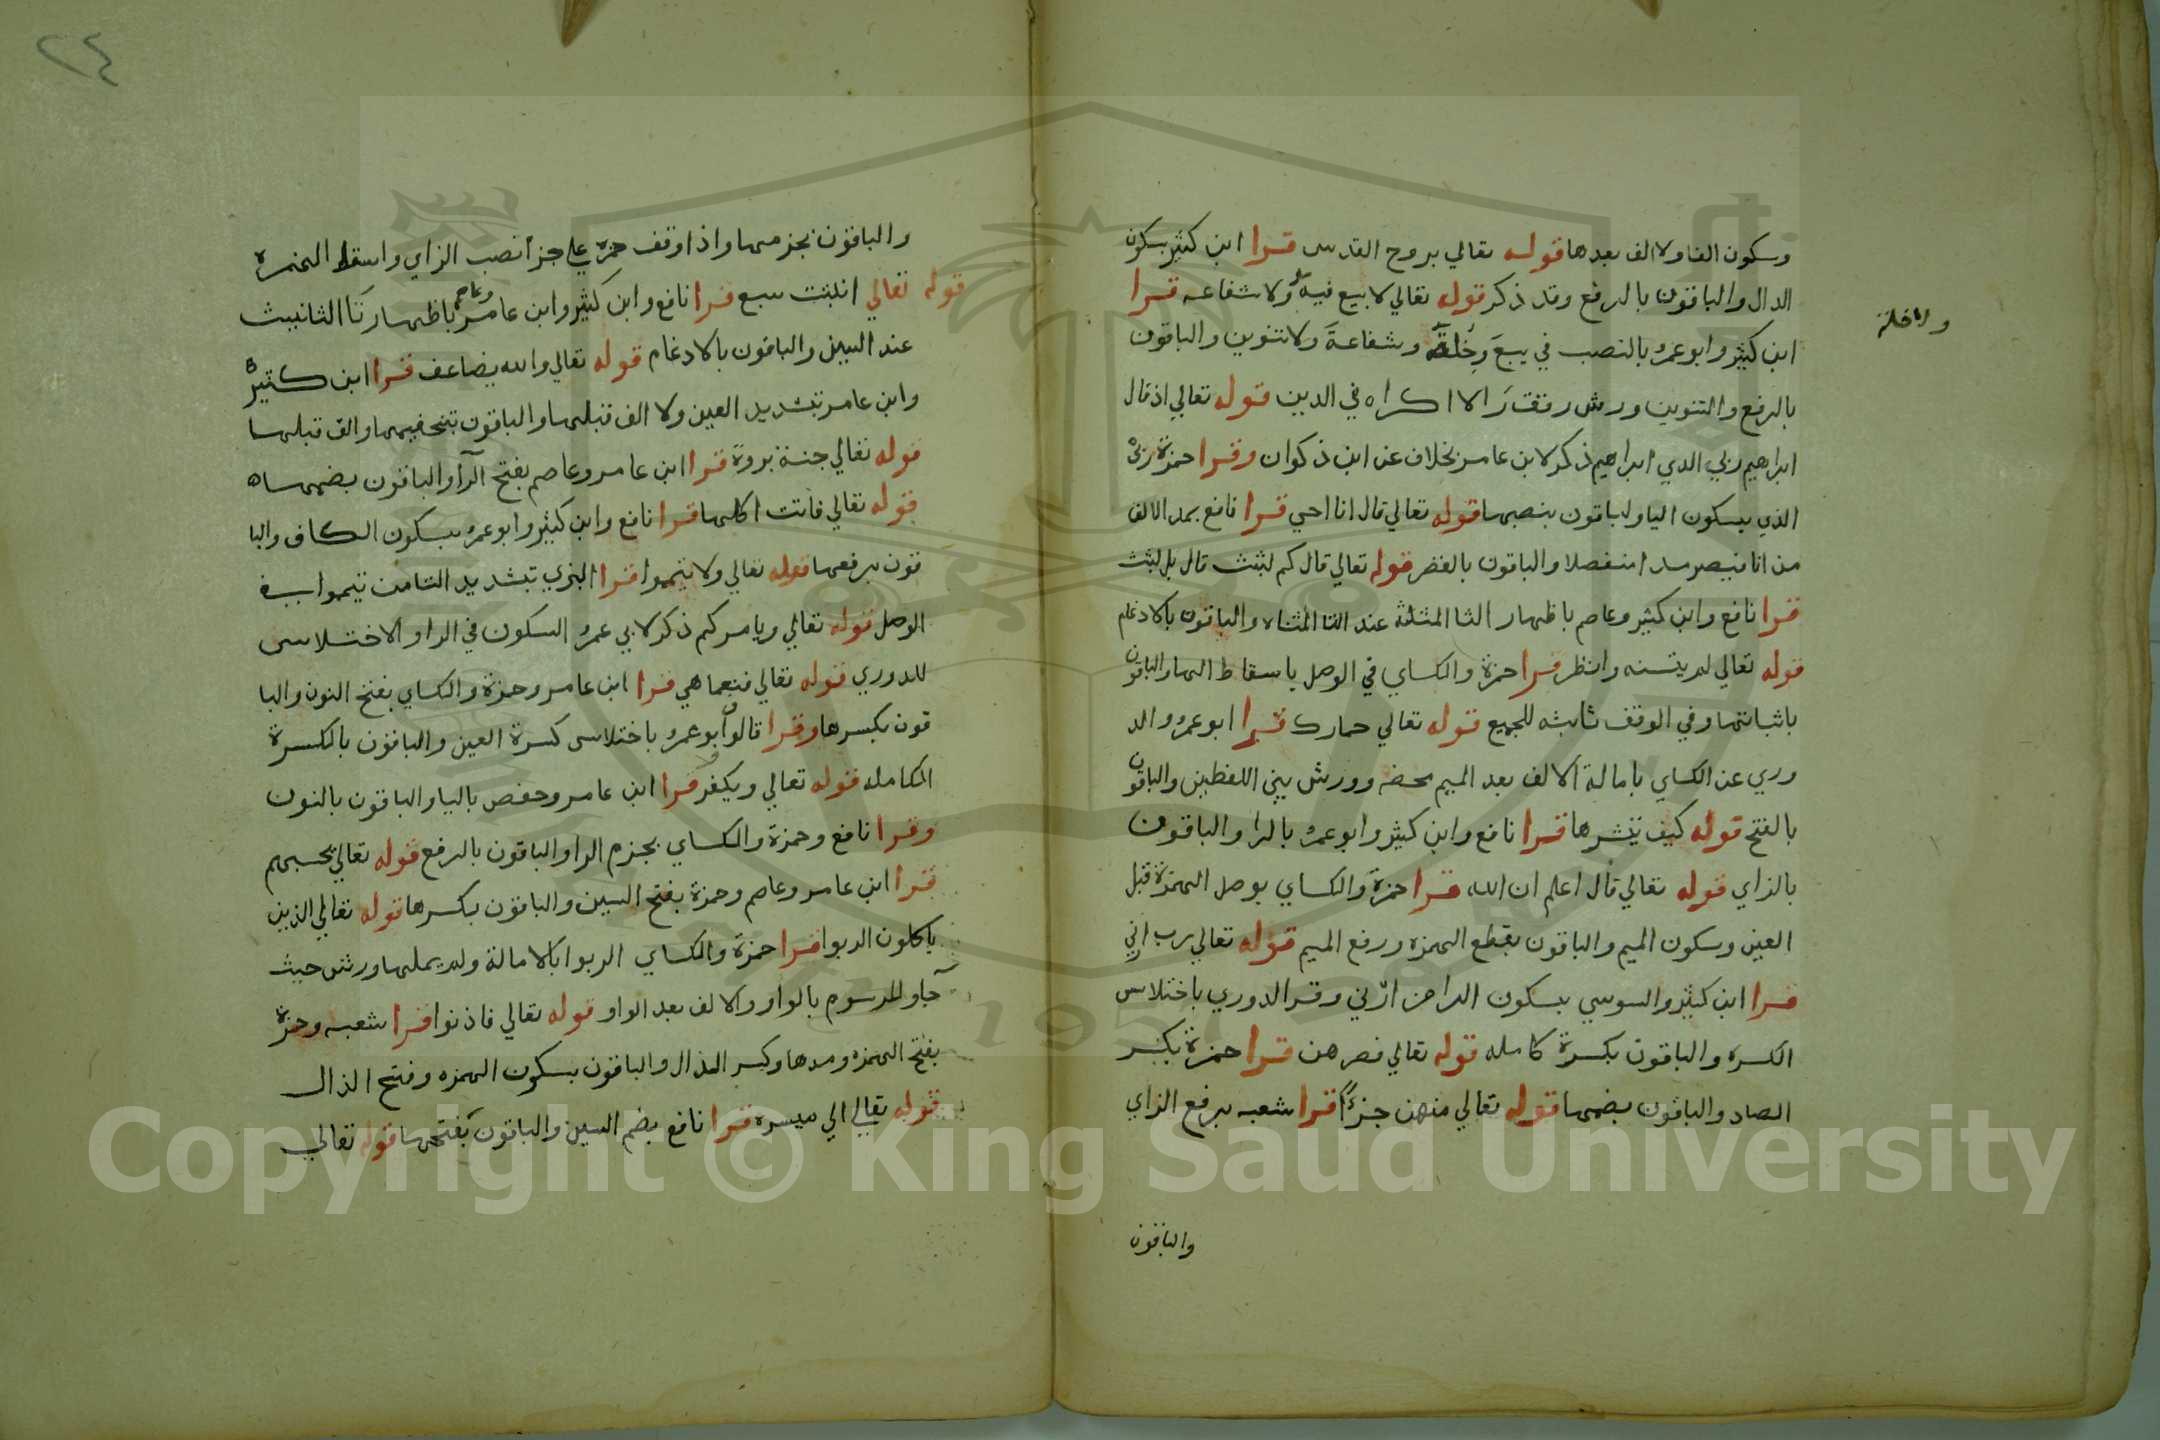 وسكون الفا ولا الف بعدها قوله تعالي بروح القدس قرا ابن كثير بسكون
الدال والباقون بالرفع وقد ذكر قوله تعالي لا بيع فيه ولا شفاعه قرا
ولا خلة
ابن كثير وابو عمرو بالنصب في بيعَ وخلةَ وشفاعةَ ولا تنوين والباقون
بالرفع والتنوين وورش رقق رَا لا اكراه في الدين قوله تعالي اذ قال
ابراهيم ربي الدي ابراهيم ذكر لابن عامر بخلاف عن ابن ذكوان وقرا حمزة ربيْ
الذي بسكون اليا ولباقون بنصبها قوله تعالي قال انا احي قرا نافع بمد الالف
من انا فيصير مدا منفصلا والباقون بالقصر قوله تعالي قال كم لبثت قال بل لبثت
قرا نافع وابن كثير وعاصم باظهار الثا المثلثة عند التا المثناه والباقون بالادغام
قوله تعالي لم يتسنه وانظر قرا حمزة والكساي في الوصل باسقاط الها والباقون
باثباتها وفي الوقف ثابثه للجميع قوله تعالي حمارك قرا ابو عمرو والد
وري عن الكساي بامالة الالف بعد الميم محضه وورش بين اللفظين والباقون
بالفتح قوله كيف ننشرها قرا نافع وابن كثير وابو عمرو بالرا والباقون
بالزاي قوله تعالي قال اعلم ان الله قرا حمزة والكساي بوصل الهمزة قبل
العين وسكون الميم والباقون بقطع الهمزه ورفع الميم قوله تعالي رب ارني
قرا ابن كثير والسوسي بسكون الرا من ارْني وقرا الدوري باختلاس
الكسره والباقون بكسرة كامله قوله تعالي فصرهن قرا حمزة بكسر
الصاد والباقون بضمها قوله تعالي منهن جزءًا قرا شعبه برفع الزاي
والباقون
٢٤
والباقون بجزمها واذا وقف حمزه علي جزا نصب الزاي واسقط الهمزه
قوله تعالي انبتت سبع قرا نافع وابن كثير وابن عامر وعاصم باظهار تا التانيث
عند السين والباقون بالادغام قوله تعالي والله يضاعف قرا ابن كثير
وابن عامر بتشديد العين ولا الف قبلها والباقون بتخفيفها والف قبلها
قوله تعالي جنة بربوة قرا ابن عامر وعاصم بفتح الرا والباقون بضمها
قوله تعالي فاتت اكلها قرا نافع وابن كثير وابو عمرو بسكون الكاف والبا
قون برفعها قوله تعالي ولا تيمموا قرا البزي بتشديد التا من تيمموا في
الوصل قوله تعالي ويامركم ذكر لابي عمرو السكون في الرا والاختلاس
للدوري قوله تعالي فنعما هي قرا ابن عامر وحمزة والكساي بفتح النون والبا
قون بكسرها وقرا قالون وابو عمرو باختلاس كسرة العين والباقون بالكسرة
الكامله قوله تعالي ويكفر قرا ابن عامر وحفص باليا والباقون بالنون
وقرا نافع وحمزة والكساي بجزم الرا والباقون بالرفع قوله تعالي يحسبهم
قرا ابن عامر وعاصم وحمزة بفتح السين والباقون بكسرها قوله تعالي الذين
ياكلون الربوا قرا حمزة والكساي الربوا بالامالة ولم يملها ورش حيث
جا والمرسوم بالواو والالف بعد الواو قوله تعالي فاذنوا قرا شعبه وحمزة
بفتح الهمزه ومدها وكسر الذال والباقون بسكون الهمزه وفتح الذال
قوله تعالي الي ميسرة قرا نافع بضم السين والباقون بفتحها قوله تعالي
Copyright © King Saud University
1957